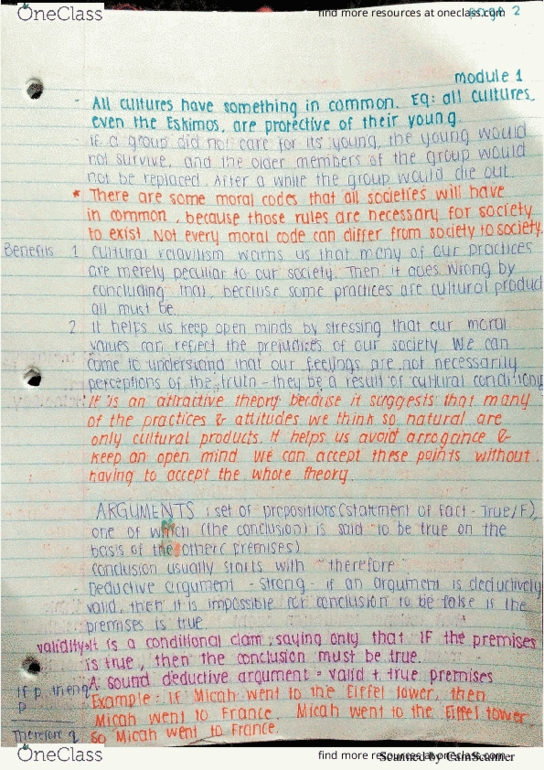 OneClass
find more resources at oneclass.com
page 2
module 1
- All cultures have something in common. Eg: all cultures,
even the Eskimos, are protective of their young.
- If a group did not care for its young, the young would
not survive, and the older members of the group would
not be replaced. After a while the group would die out.
* There are some moral codes that all societies will have
in common, because those rules are necessary for society
to exist. Not every moral code can differ from society to society.
Benefits 1 Cultural relativism warns us that many of our practices
are merely peculiar to our society. Then it goes wrong by
concluding that, because some practices are cultural product
all must be.
2 It helps us keep open minds by stressing that our moral
values can reflect the prejudices of our society. We can
come to understand that our feelings are not necessarily
perceptions of the truth - they be a result of cultural
It is an attractive theory because it suggests that many
of the practices & attitudes we think so natural are
only cultural products. It helps us avoid arrogance &
keep an open mind. We can accept these points without
having to accept the whole theory.
ARGUMENTS : set of propositions (statment of fact - True/F),
one of which (the conclusion) is said to be true on the
basis of the other (premises)
conclusion usually starts with "therefore
- Deductive argument - strong - if an argument is deductively
valid, then it is impossible for conclusion to be false if the
premises is true
validity It is a conditional clam, saying only that IF the premises
is true, then the conclusion must be true.
A sound deductive argument = valid + true premises
If p then q
Example: If Micah went to the Eiffel tower, then
p
Micah went to France. Micah went to the Eiffel tower
Therefore q
so Micah went to France.
OneClass
find more resources at oneclass.com
Scanned by CamScanner